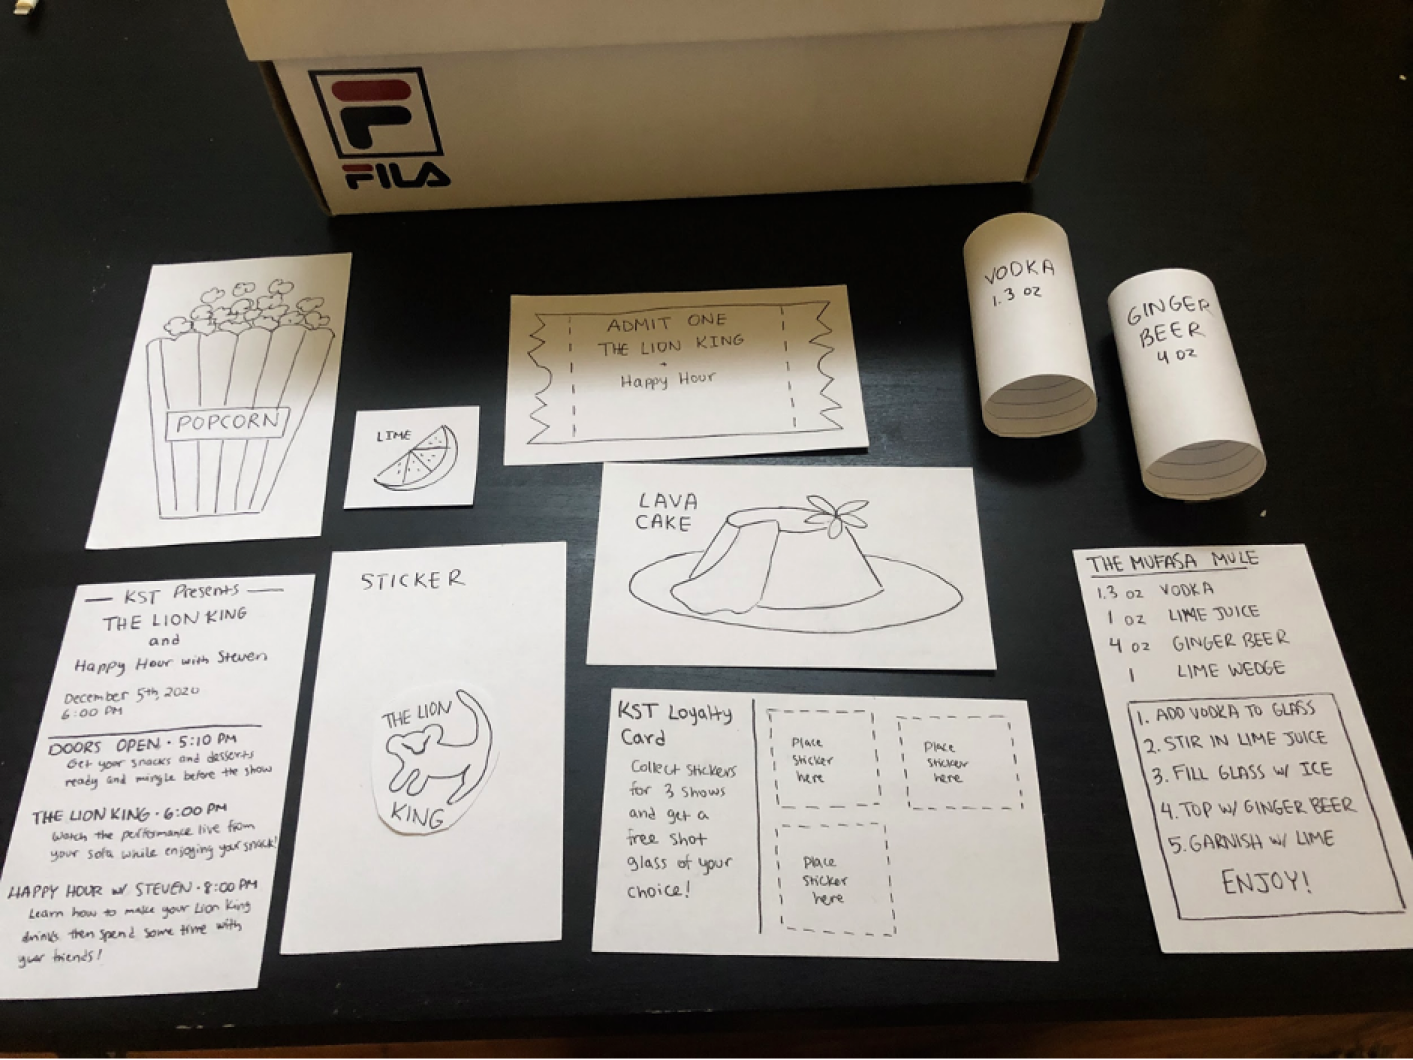 FILA
POPCORN
LIME
ADMIT ONE
THE LION KING
+
Happy Hour
VODKA
1.3 OZ
GINGER
BEER
4 OZ
LAVA
CAKE
— KST Presents —
THE LION KING
and
Happy Hour with Steven
December 5th, 2020
6:00 PM
DOORS OPEN • 5:10 PM
Get your snacks and desserts
ready and mingle before the show
THE LION KING • 6:00 PM
Watch the performance live from
your sofa while enjoying your snack!
HAPPY HOUR w/ STEVEN • 8:00 PM
Learn how to make your Lion King
drinks then spend some time with
your friends!
STICKER
THE LION
KING
KST Loyalty
Card
Collect stickers
for 3 shows
and get a
free shot
glass of your
choice!
Place
sticker
here
Place
sticker
here
Place
sticker
here
THE MUFASA MULE
1.3 OZ VODKA
1 OZ LIME JUICE
4 OZ GINGER BEER
1 LIME WEDGE
1. ADD VODKA TO GLASS
2. STIR IN LIME JUICE
3. FILL GLASS W/ ICE
4. TOP W/ GINGER BEER
5. GARNISH W/ LIME
ENJOY!